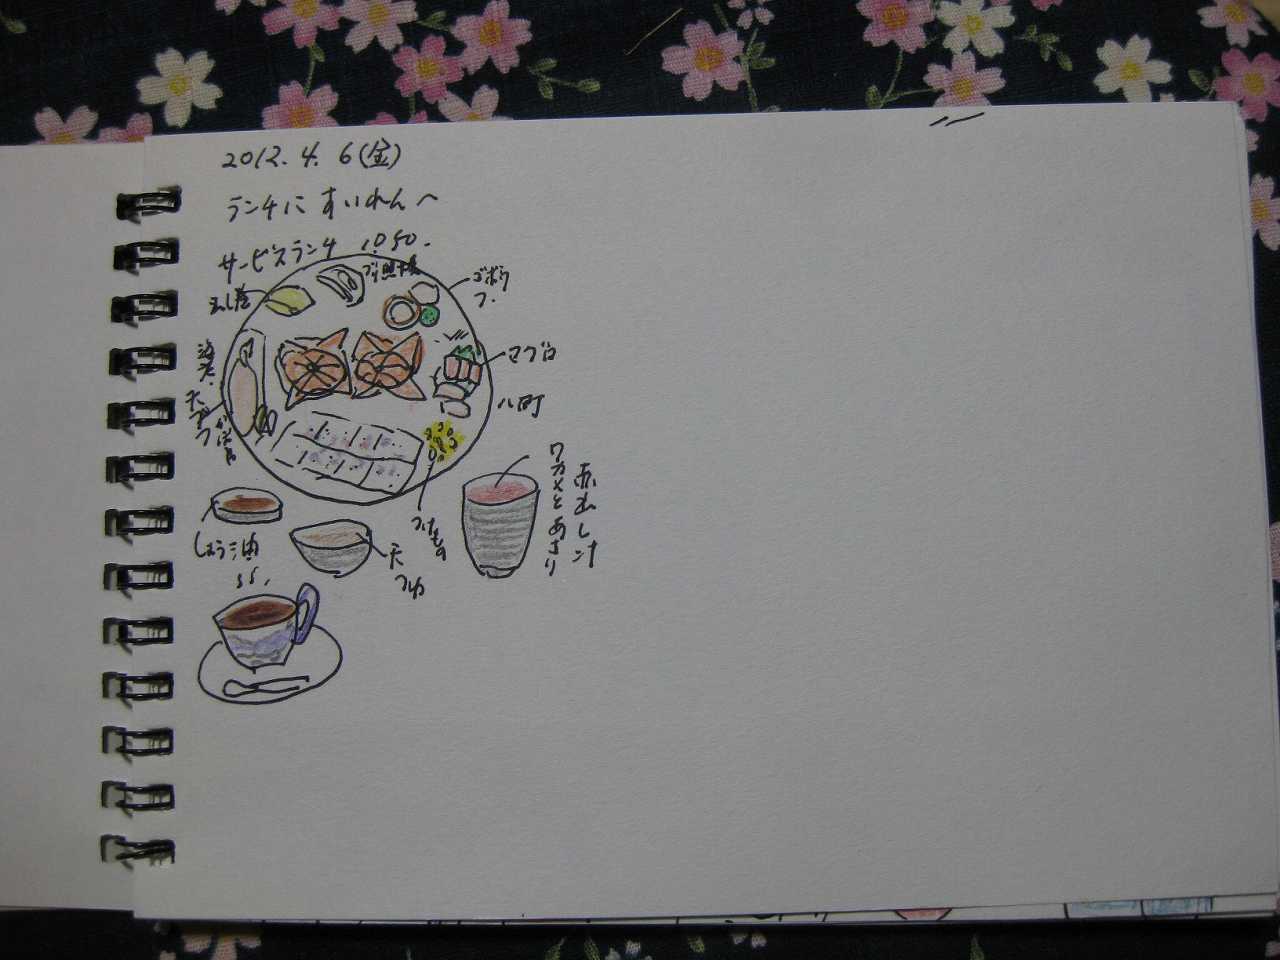 2012.4.6(金)
ランチに すいれんへ
サービスランチ 1050.
ブリ照焼
だし巻
ゴボウ
マグロ
海老.
天プラ
つけもの
赤出し汁
ワカメとあさり
しょう油
天
つゆ